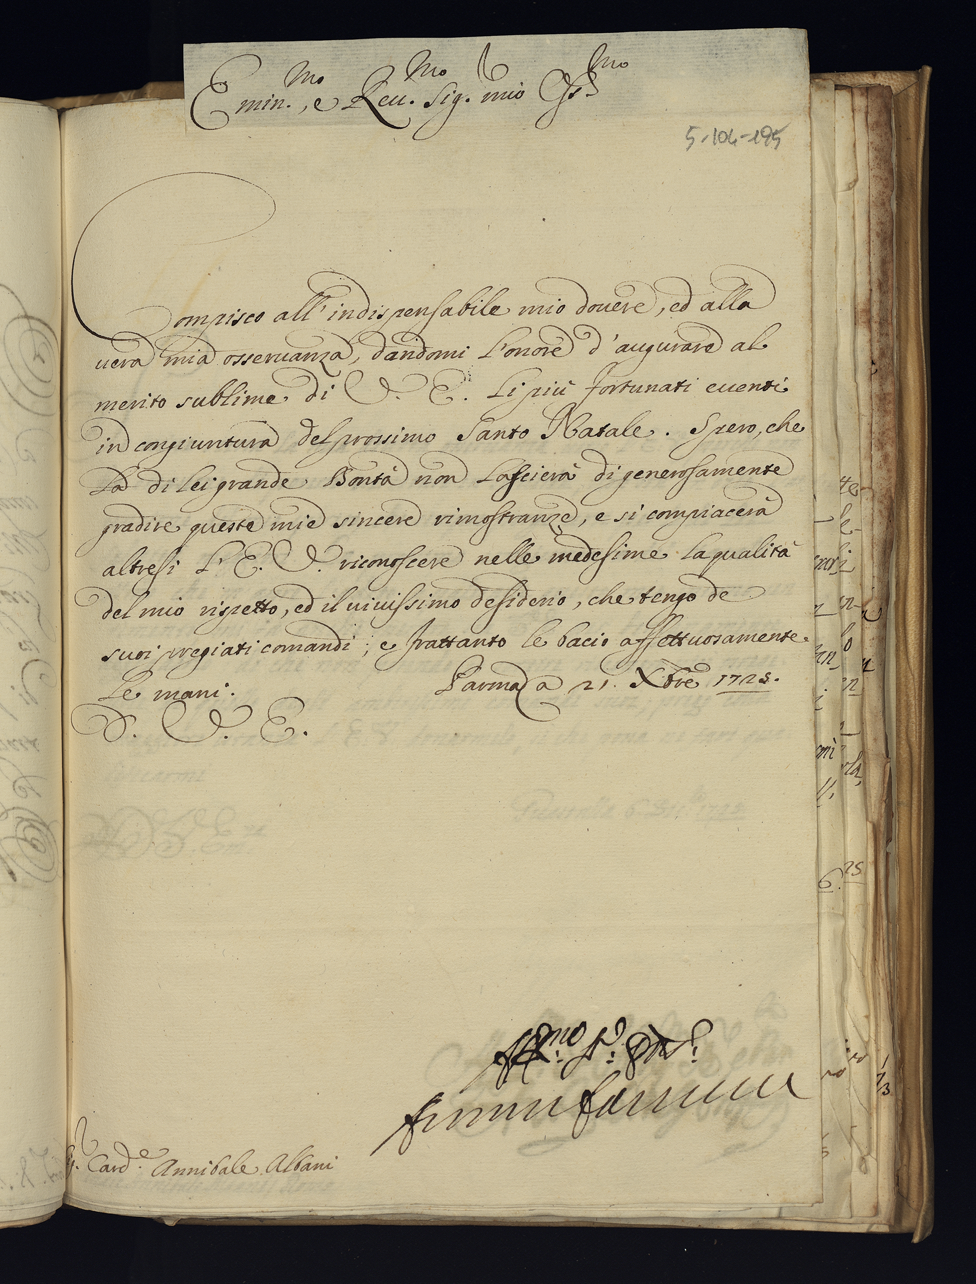 Emin.mo, e Reu.mo Sig.r mio Oss.mo
5-104-195
Compisco all'indispensabile mio douere, ed alla
uera mia osseruanza, dandomi l'onore d'augurare al
merito sublime di V. E. li più fortunati euenti
in congiuntura del prossimo Santo Natale. Spero, che
la di lei grande Bontà non lascierà di generosamente
gradire queste mie sincere rimostranze, e si compiacerà
altresi l'E. V. riconoscere nelle medesime la qualità
del mio rispetto, ed il uiuissimo desiderio, che tengo de
suoi pregiati comandi; e frattanto le bacio affettuosamente
le mani.
Parma a 21. Xbre 1725.
D. V. E.
Aff.mo
Farnese
Card.e Annibale Albani